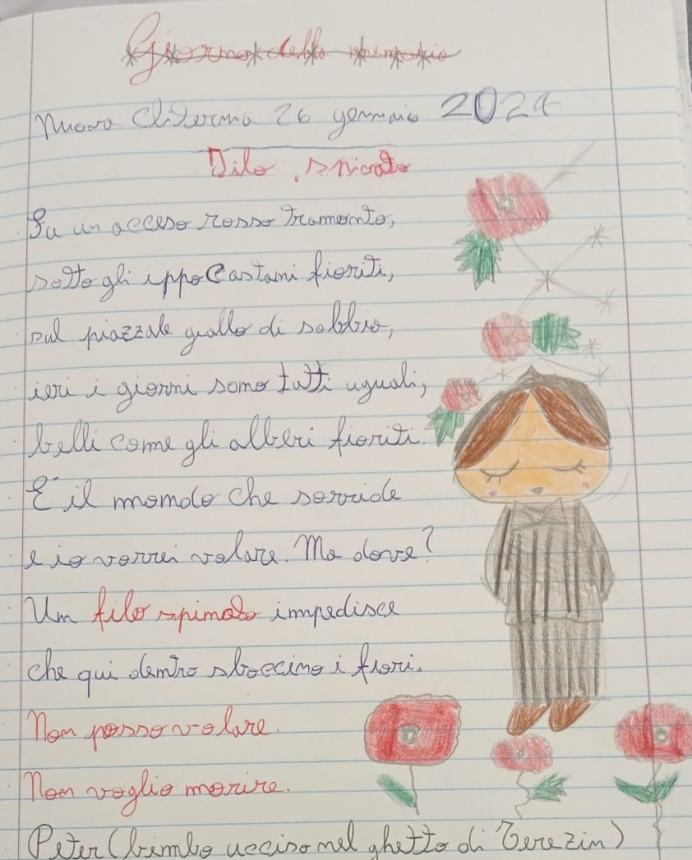 Giorno della memoria
Nuova Cliterma 26 gennaio 2024
Filo spinato
Su un acceso rosso tramonto,
sotto gli ippocastani fioriti,
sul piazzale giallo di sabbia,
ieri i giorni sono tutti uguali,
belli come gli alberi fioriti.
E' il mondo che sorride
e io vorrei volare. Ma dove?
Un filo spinato impedisce
che qui dentro sboccino i fiori.
Non posso volare.
Non voglio morire.
Peter (bimbo ucciso nel ghetto di Terezin)